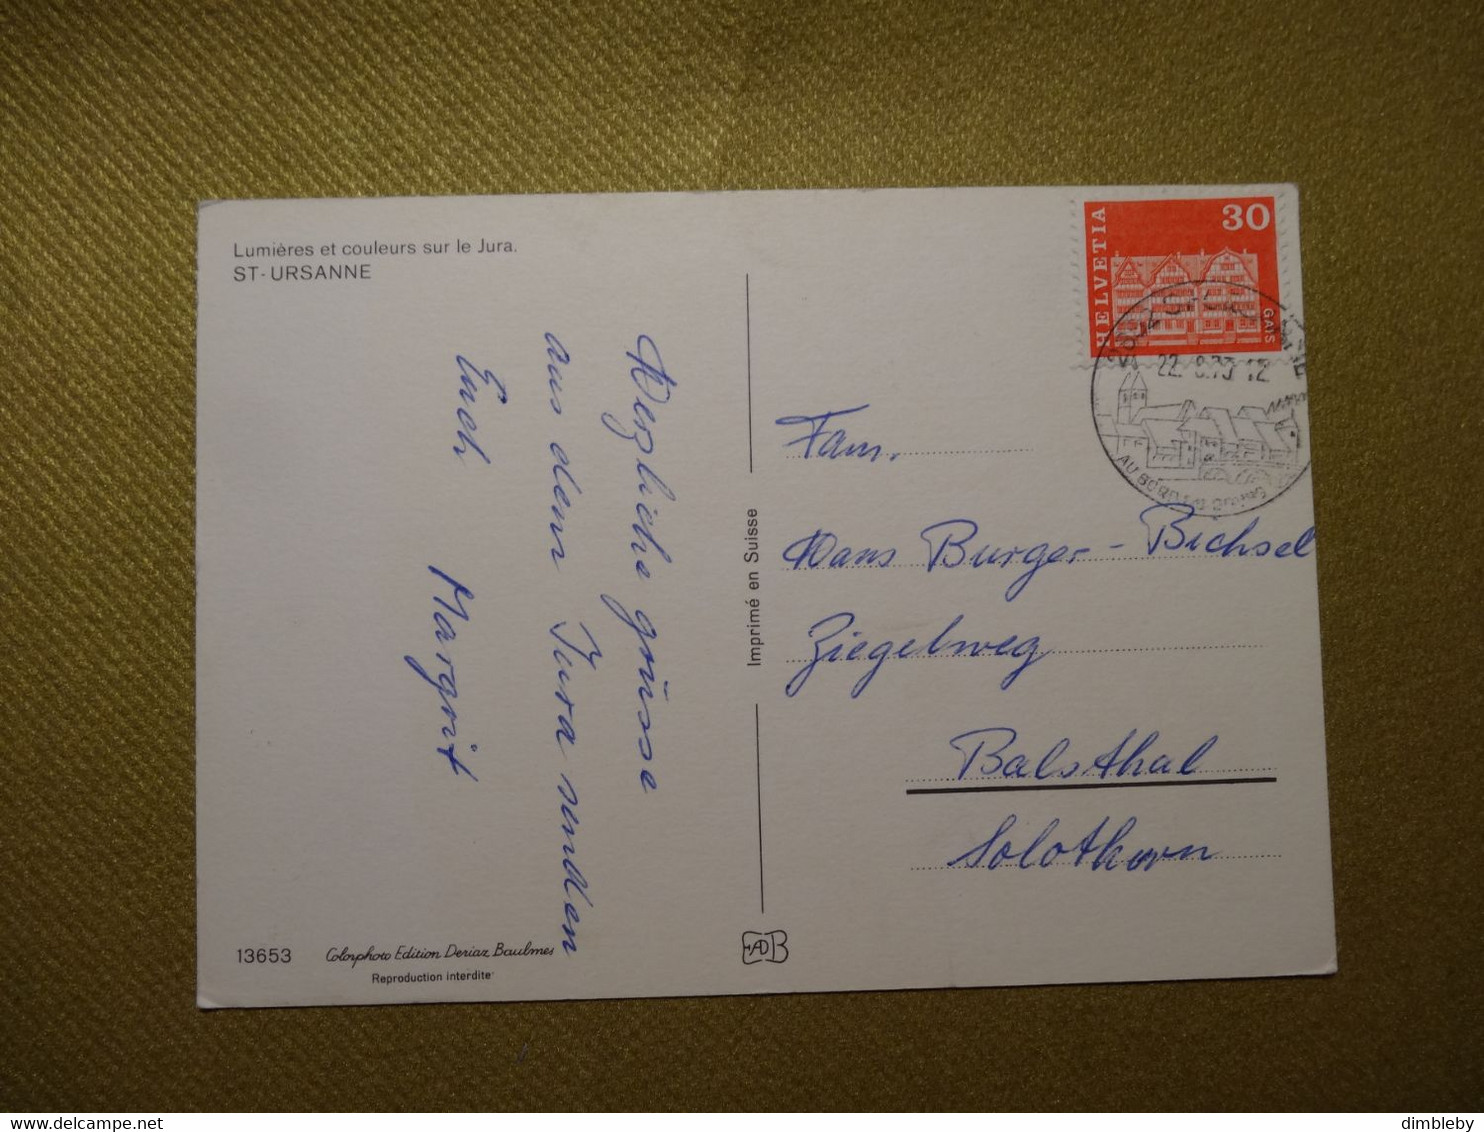 Lumières et couleurs sur le Jura.
ST-URSANNE
Herzliche grüsse
aus dem Jura senden
Euch
Margrit
13653
Colorphoto Edition Deriaz Baulmes
Reproduction interdite
Imprimé en Suisse
EADB
HELVETIA
30
GAIS
22. 8.73-12
AU BORD DU DOUBS
Fam.
Hans Burger-Bichsel
Ziegelweg
Balsthal
Solothurn
delcampe.net
dimbleby